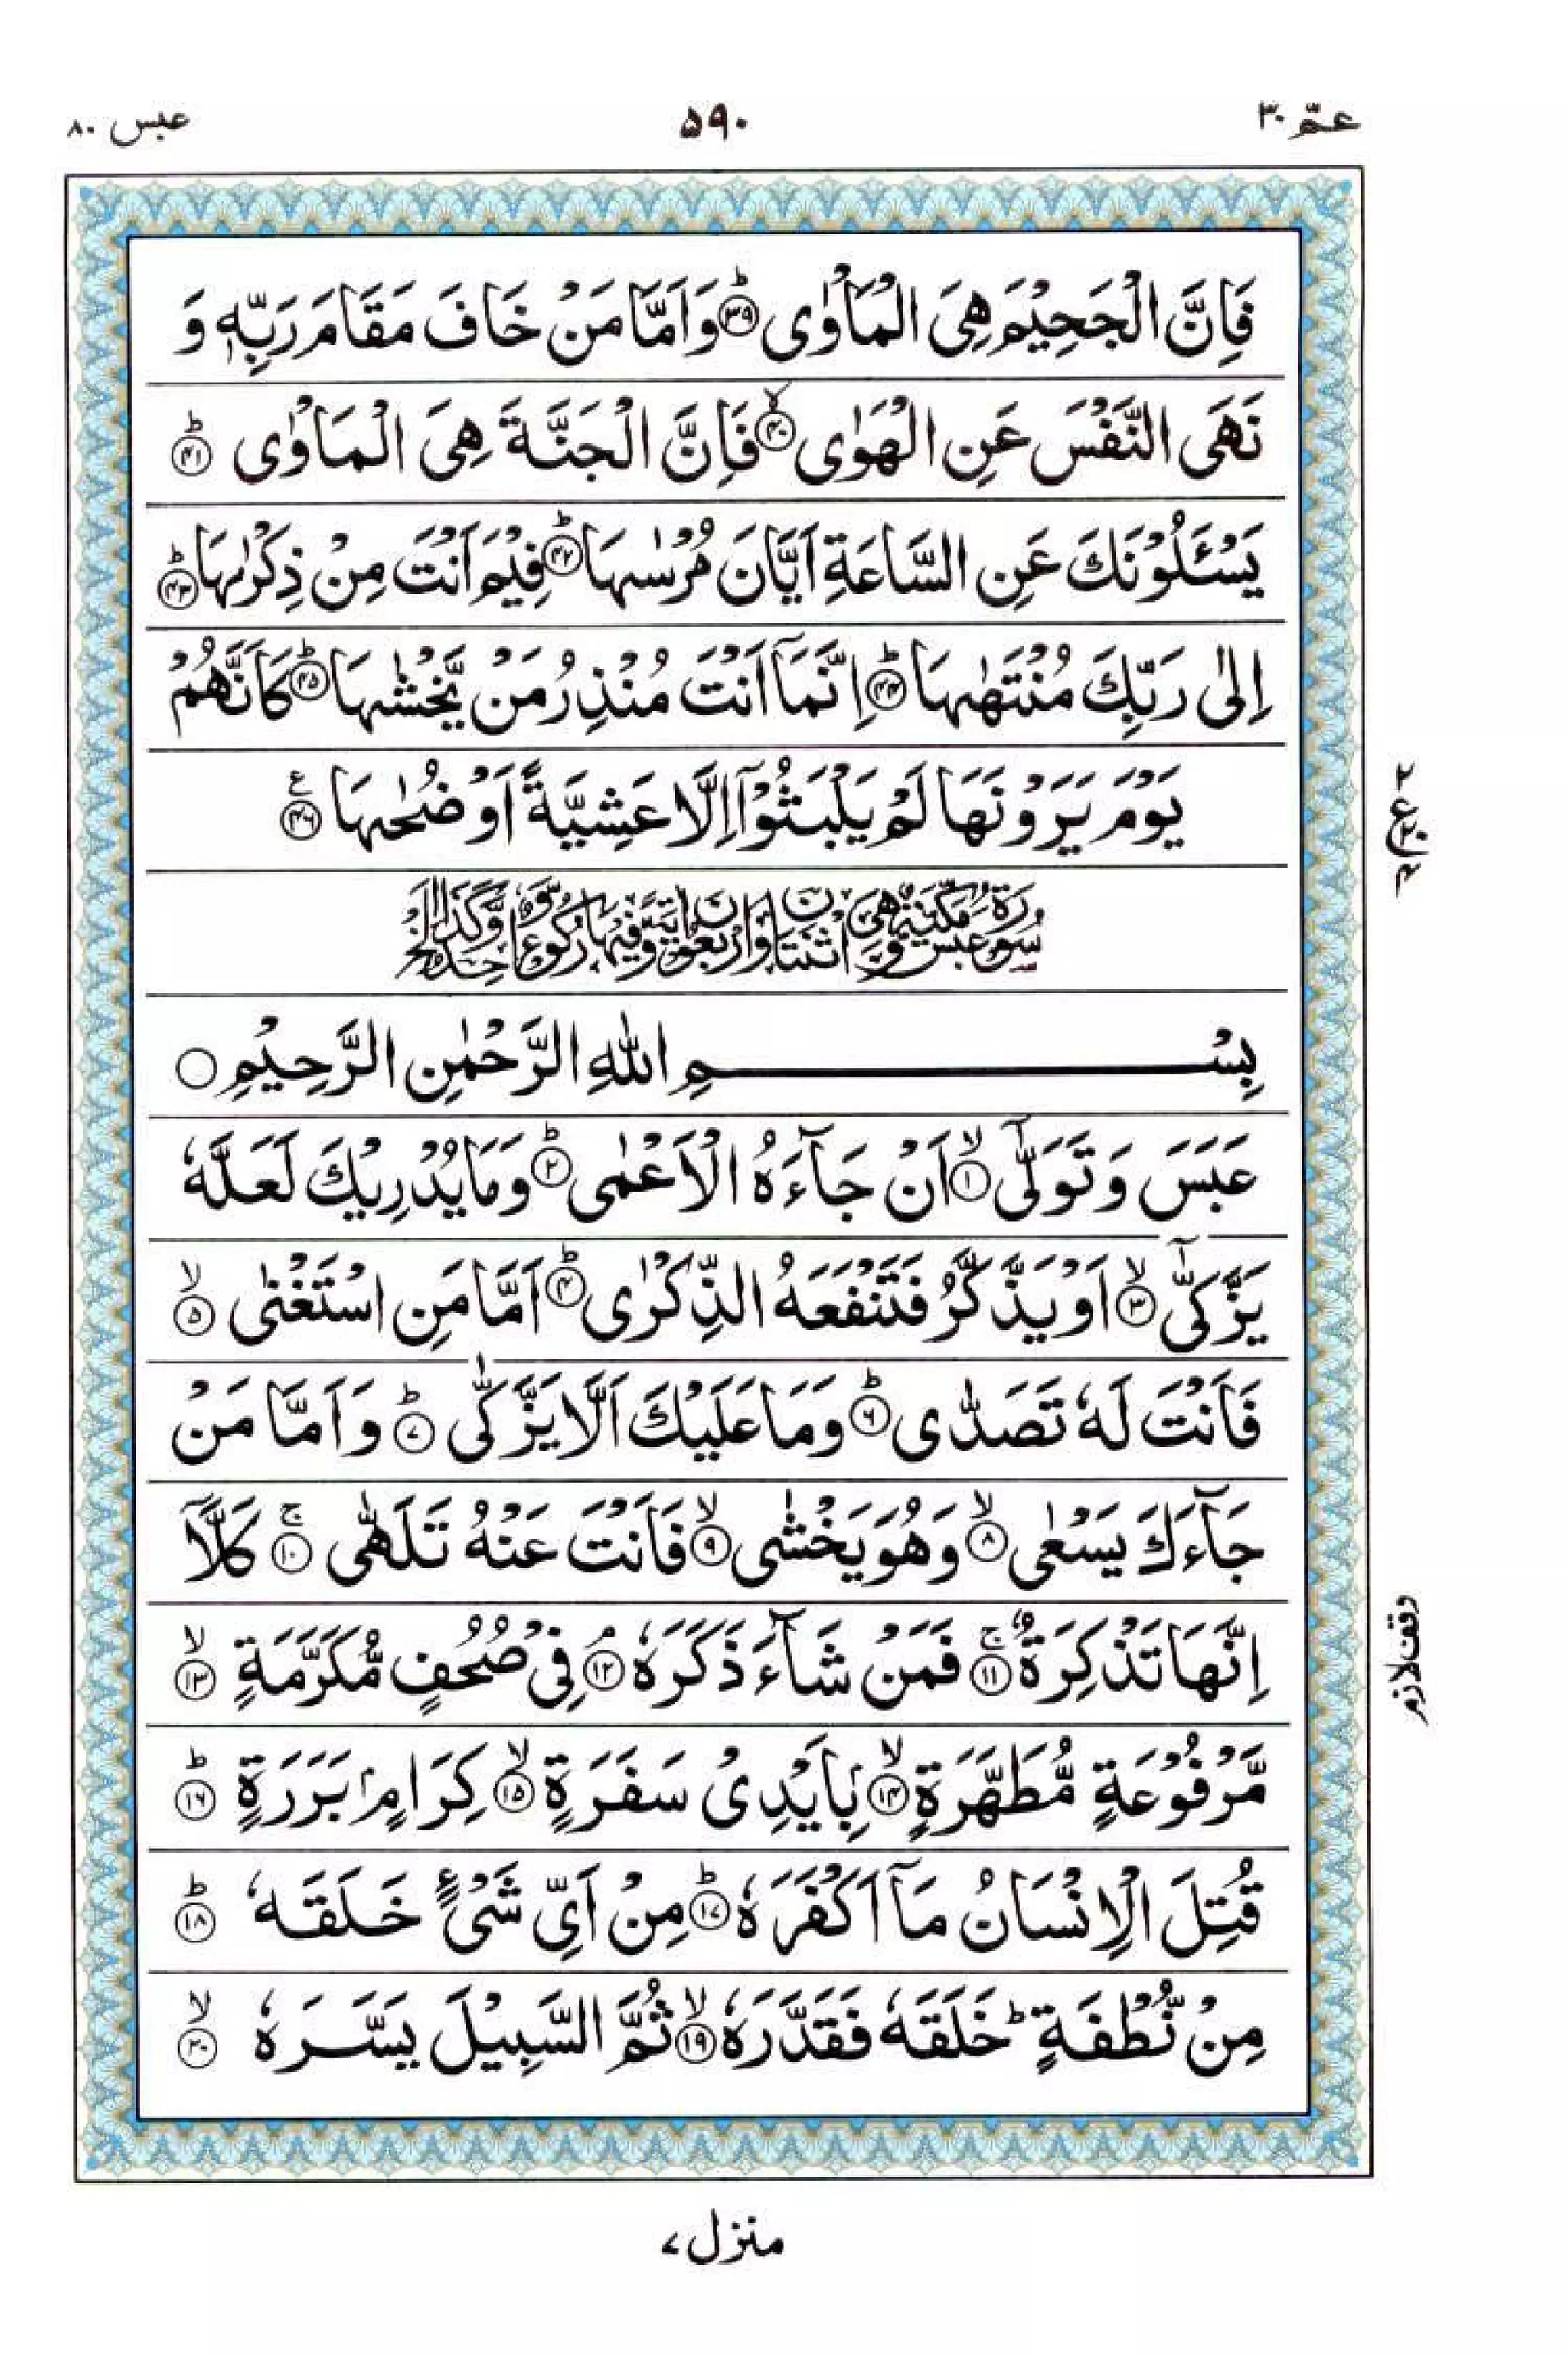 عبس ۸۰
۵۹۰
عمّ ۳۰
فَاِنَّ الْجَحِيْمَ هِيَ الْمَاْوٰى ﴿۳۹﴾ؕ وَاَمَّا مَنْ خَافَ مَقَامَ رَبِّهٖ وَ
نَهَى النَّفْسَ عَنِ الْهَوٰى ﴿۴۰﴾ۙ فَاِنَّ الْجَنَّةَ هِيَ الْمَاْوٰى ﴿۴۱﴾ؕ
يَسْـَٔلُوْنَكَ عَنِ السَّاعَةِ اَيَّانَ مُرْسٰىهَا ﴿۴۲﴾ؕ فِيْمَ اَنْتَ مِنْ ذِكْرٰىهَا ﴿۴۳﴾ؕ
اِلٰى رَبِّكَ مُنْتَهٰىهَا ﴿۴۴﴾ؕ اِنَّمَاۤ اَنْتَ مُنْذِرُ مَنْ يَّخْشٰىهَا ﴿۴۵﴾ؕ كَاَنَّهُمْ
يَوْمَ يَرَوْنَهَا لَمْ يَلْبَثُوْۤا اِلَّا عَشِيَّةً اَوْ ضُحٰىهَا ﴿۴۶﴾ع
سُوْرَةُ عَبَسَ مَكِّيَّةٌ وَّهِيَ اثْنَتَانِ وَاَرْبَعُوْنَ اٰيَةً وَّفِيْهَا رُكُوْعٌ وَّاحِدٌ
بِسْمِ اللّٰهِ الرَّحْمٰنِ الرَّحِيْمِ ○
عَبَسَ وَتَوَلّٰۤى ﴿۱﴾ۙ اَنْ جَآءَهُ الْاَعْمٰى ﴿۲﴾ؕ وَمَا يُدْرِيْكَ لَعَلَّهٗ
يَزَّكّٰۤى ﴿۳﴾ۙ اَوْ يَذَّكَّرُ فَتَنْفَعَهُ الذِّكْرٰى ﴿۴﴾ؕ اَمَّا مَنِ اسْتَغْنٰى ﴿۵﴾ۙ
فَاَنْتَ لَهٗ تَصَدّٰى ﴿۶﴾ؕ وَمَا عَلَيْكَ اَلَّا يَزَّكّٰى ﴿۷﴾ؕ وَاَمَّا مَنْ
جَآءَكَ يَسْعٰى ﴿۸﴾ۙ وَهُوَ يَخْشٰى ﴿۹﴾ۙ فَاَنْتَ عَنْهُ تَلَهّٰى ﴿۱۰﴾ۚ كَلَّاۤ
اِنَّهَا تَذْكِرَةٌ ﴿۱۱﴾ۚ فَمَنْ شَآءَ ذَكَرَهٗ ﴿۱۲﴾ۘ فِيْ صُحُفٍ مُّكَرَّمَةٍ ﴿۱۳﴾ۙ
مَّرْفُوْعَةٍ مُّطَهَّرَةٍۭ ﴿۱۴﴾ۙ بِاَيْدِيْ سَفَرَةٍ ﴿۱۵﴾ۙ كِرَامٍۭ بَرَرَةٍ ﴿۱۶﴾ؕ
قُتِلَ الْاِنْسَانُ مَاۤ اَكْفَرَهٗ ﴿۱۷﴾ؕ مِنْ اَيِّ شَيْءٍ خَلَقَهٗ ﴿۱۸﴾ؕ
مِنْ نُّطْفَةٍ ؕ خَلَقَهٗ فَقَدَّرَهٗ ﴿۱۹﴾ۙ ثُمَّ السَّبِيْلَ يَسَّرَهٗ ﴿۲۰﴾ۙ
وقف لازم
منزل ۷